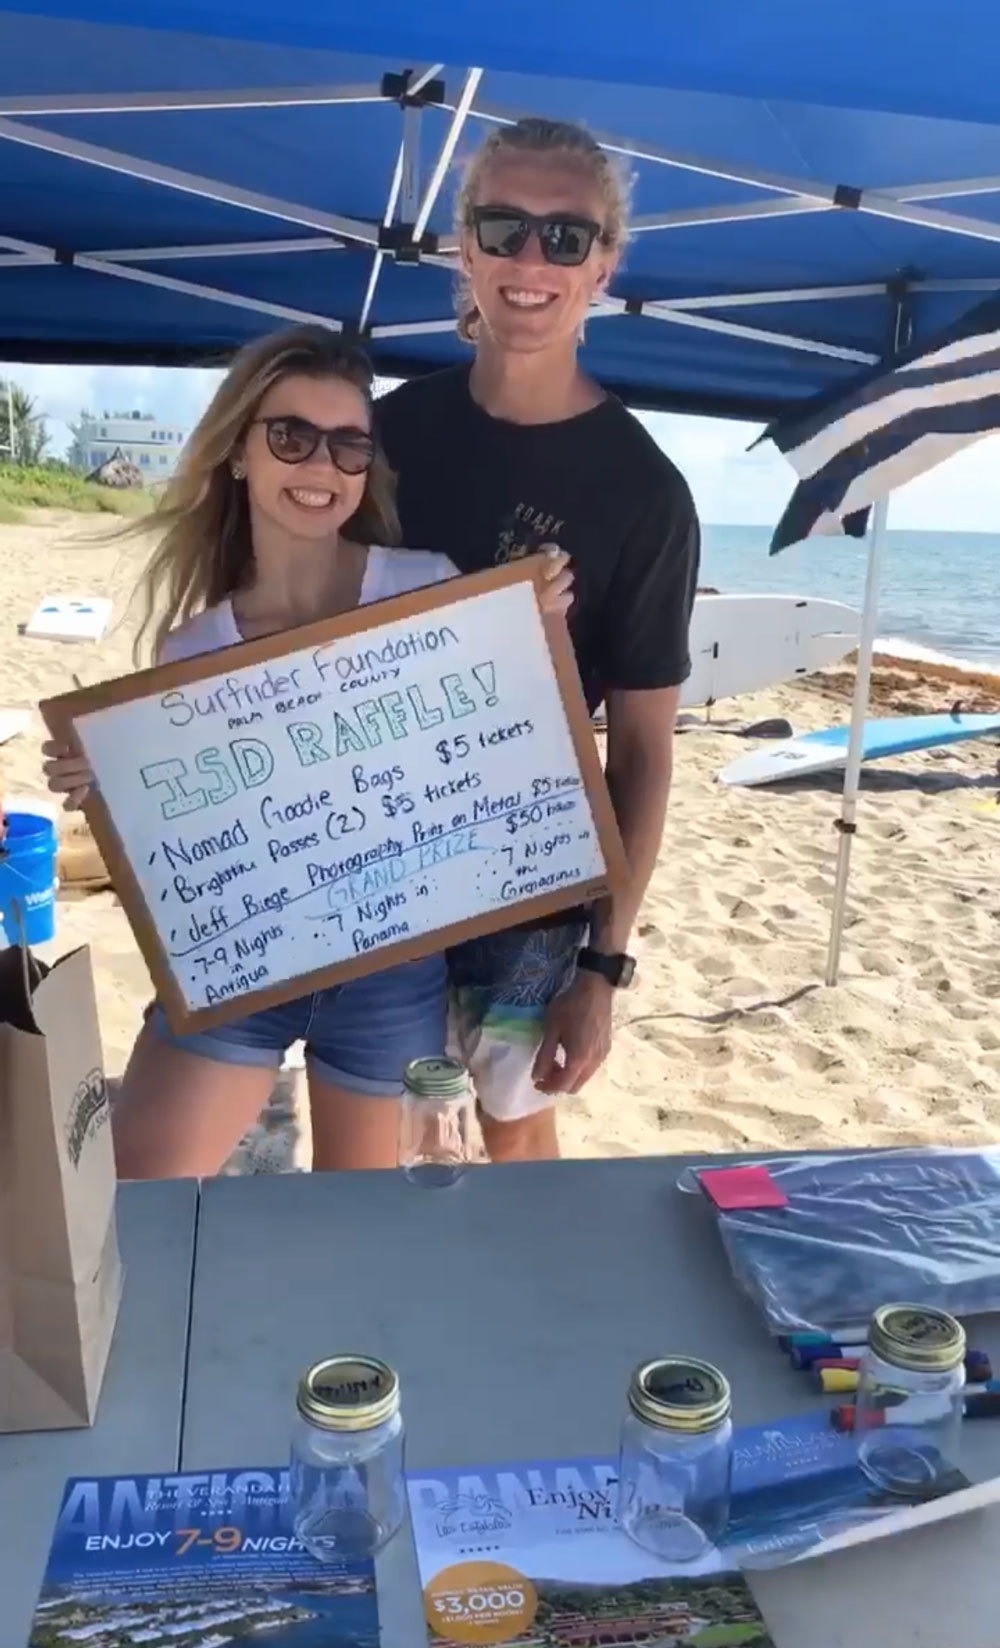 ROARK
Surfrider Foundation
PALM BEACH COUNTY
ISD RAFFLE!
Nomad Goodie Bags $5 tickets
Brightline Passes (2) $5 tickets
Jeff Biege Photography Print on Metal $5 tickets
GRAND PRIZE $50 tickets
7-9 Nights in Antigua
7 Nights in Panama
7 Nights in the Grenadines
ANTIGUA
THE VERANDAH
Resort & Spa - Antigua
ENJOY 7-9 NIGHTS
PANAMA
Los Establos
Enjoy 7
Nights
APPROX. RETAIL VALUE
$3,000
PALM ISLAND
The Grenadines
Enjoy 7